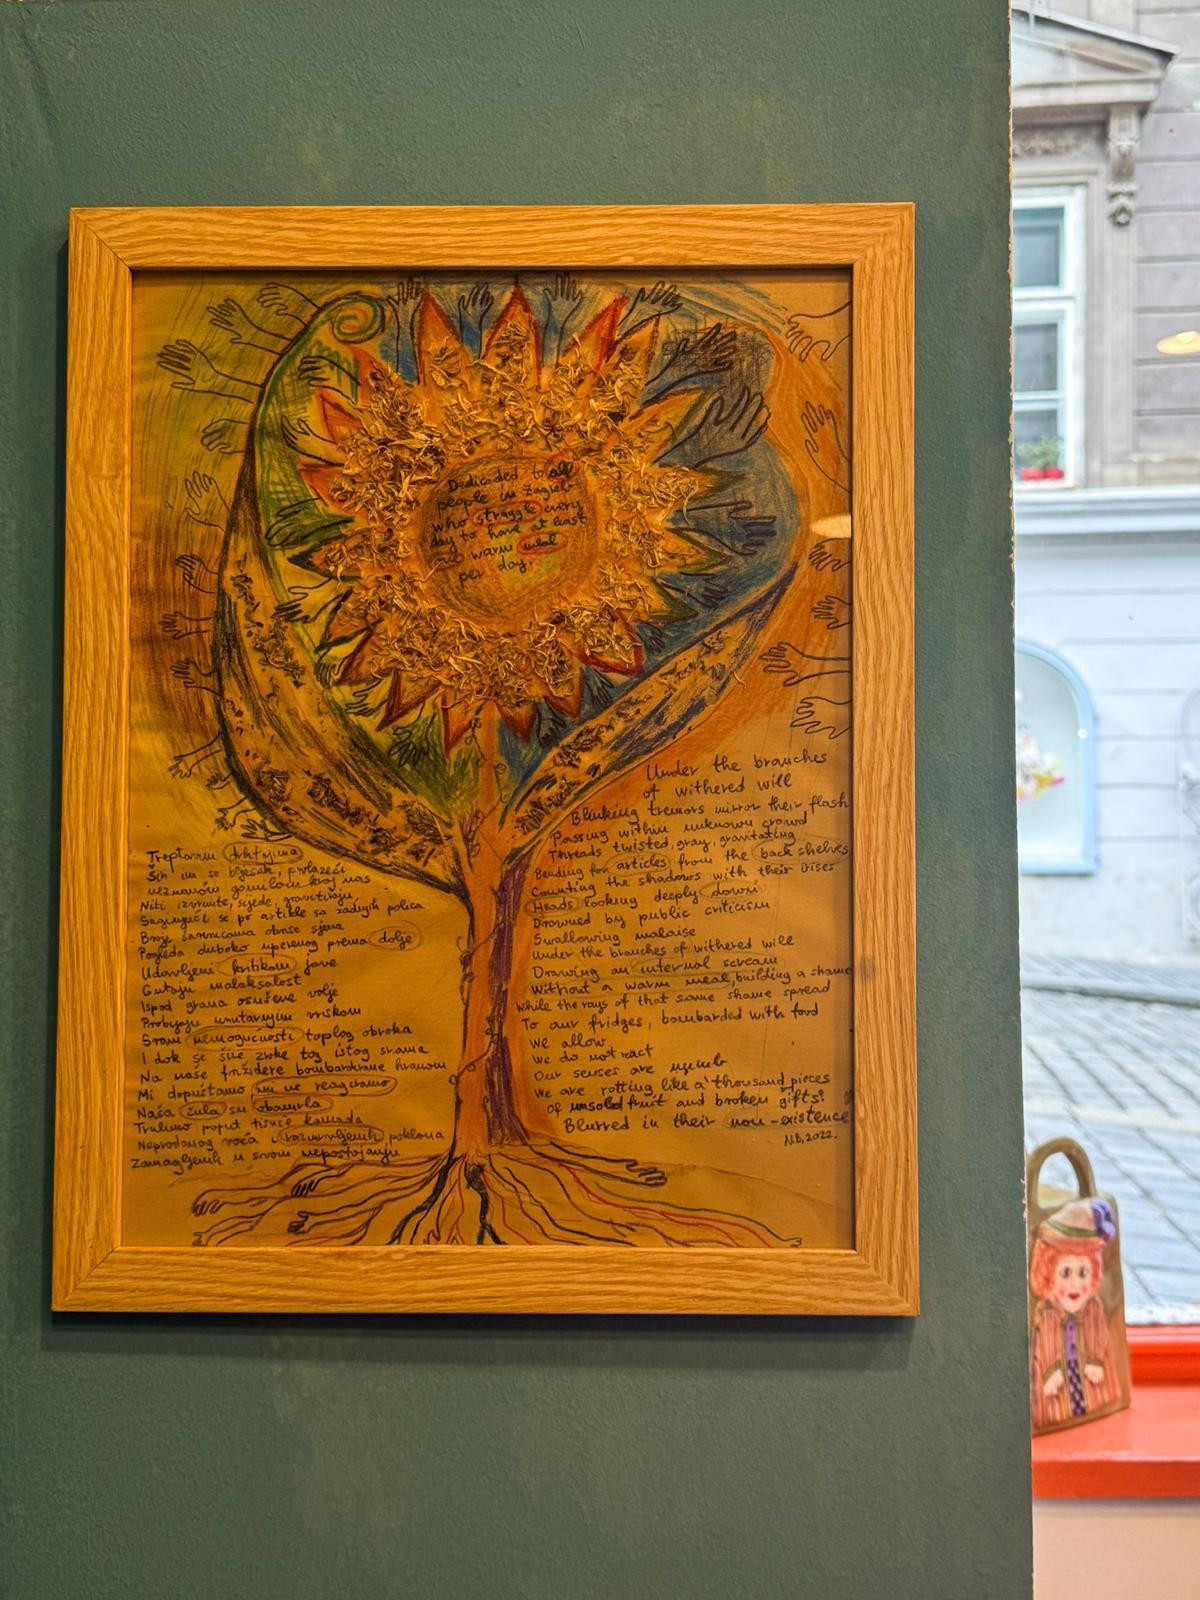 Dedicated to all
people in Zagreb
who struggle every
day to have at least
one warm meal
per day.
Treptavim drhtajima
Šin im se bljesak, prolazeći
neznanom gomilom kraj nas
Niti izvrnute, sijede, gravitiraju,
Saginjući se po artikle sa zadnjih polica
Broje šarenicama obrise sjena
Pogleda duboko uperenog prema dolje
Udavljeni kritikom jave
Gutaju malaksalost
Ispod grana osušene volje
Probijaju unutarnjim vriskom
Sram nemogućnosti toplog obroka
I dok se šire zrake tog istog srama
Na naše frižidere bombardirane hranom
Mi dopuštamo, mi ne reagiramo
Naša čula su obamrla
Trulimo poput tisuće komada
Neprodanog voća i razmrvljenih poklona
Zamagljenih u svom nepostojanju
Under the branches
of withered will
Blinking tremors mirror their flash
Passing within unknown crowd
Threads twisted, gray, gravitating
Bending for articles from the back shelves
Counting the shadows with their irises
Heads looking deeply down
Drowned by public criticism
Swallowing malaise
Under the branches of withered will
Drawing an internal scream
Without a warm meal, building a shame
While the rays of that same shame spread
To our fridges, bombarded with food
We allow
We do not react
Our senses are numb
We are rotting like a thousand pieces
Of unsold fruit and broken gifts
Blurred in their non-existence
N.B, 2022.